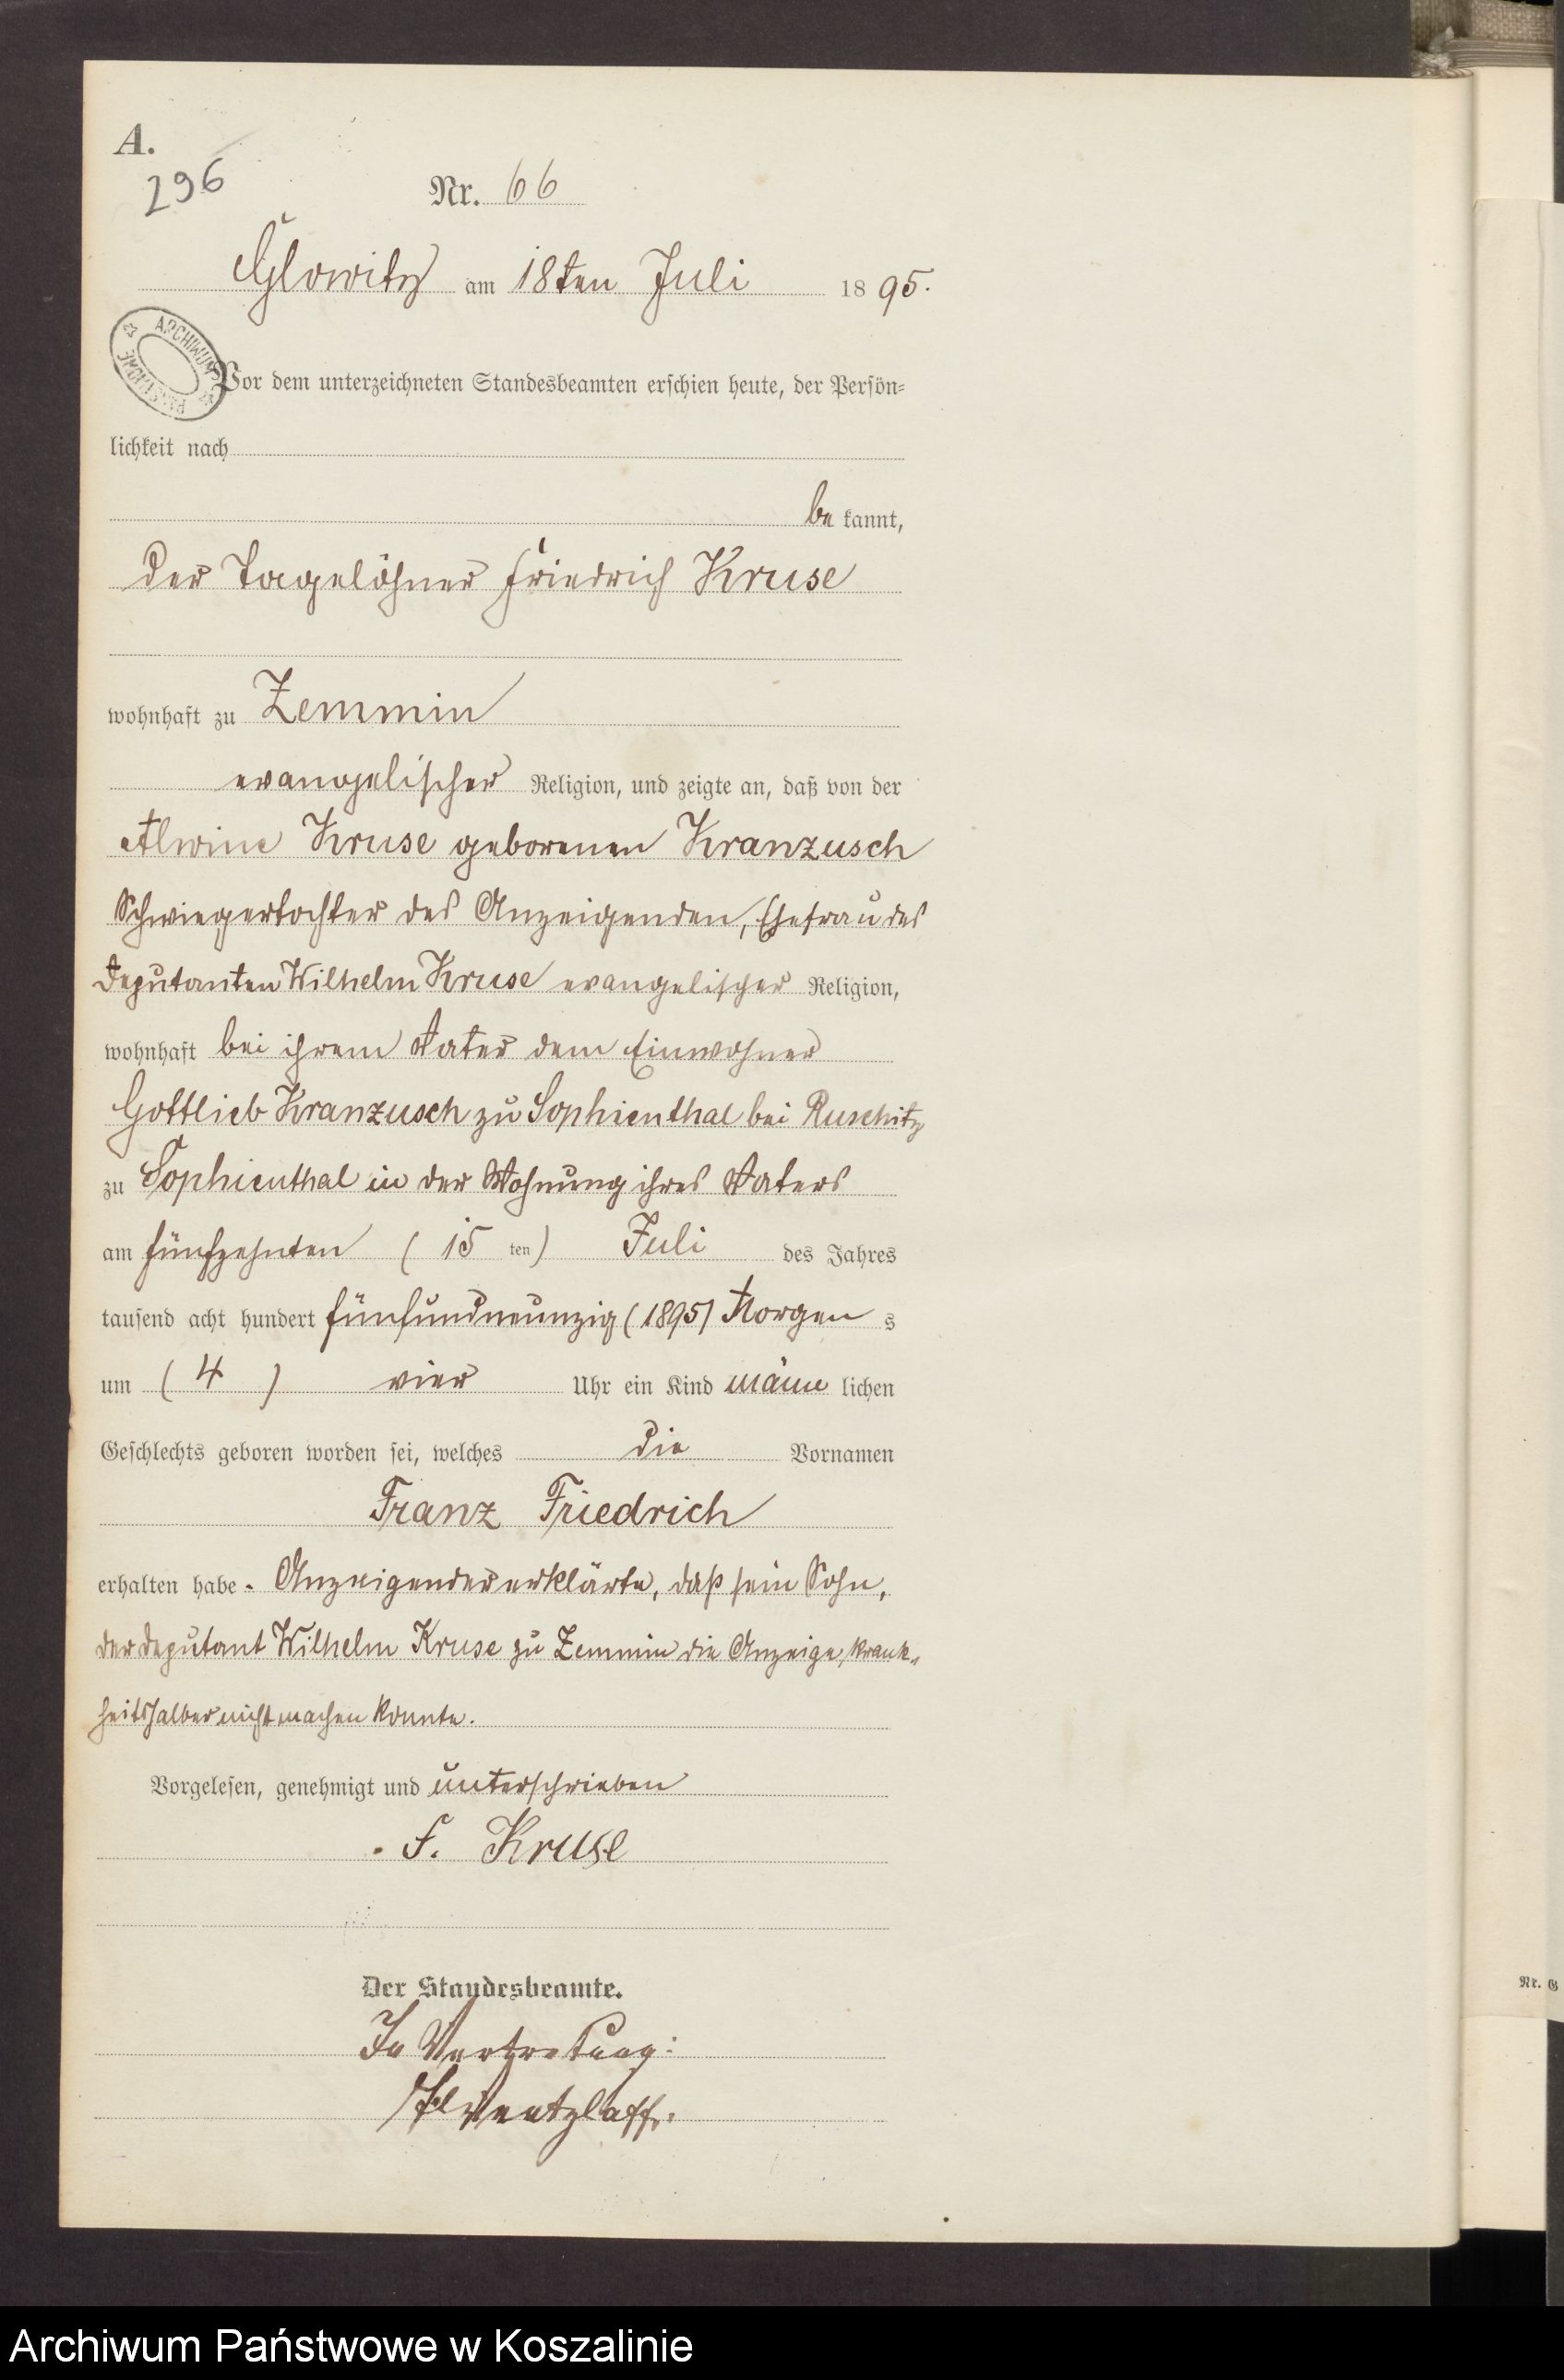 A.
296
Nr. 66
Glowitz am 18ten Juli 1895.
ARCHIWUM
Vor dem unterzeichneten Standesbeamten erschien heute, der Persön=
lichkeit nach
be kannt,
der Tagelöhner Friedrich Kruse
wohnhaft zu Zemmin
evangelischer Religion, und zeigte an, daß von der
Alwine Kruse geborenen Kranzusch
Schwiegertochter des Anzeigenden, Ehefrau des
Deputanten Wilhelm Kruse evangelischer Religion,
wohnhaft bei ihrem Vater dem Einwohner
Gottlieb Kranzusch zu Sophienthal bei Ruschitz
zu Sophienthal in der Wohnung ihres Vaters
am fünfzehnten (15 ten) Juli des Jahres
tausend acht hundert fünfundneunzig (1895) Morgen s
um (4) vier Uhr ein Kind männ lichen
Geschlechts geboren worden sei, welches die Vornamen
Franz Friedrich
erhalten habe. Anzeigender erklärte, daß sein Sohn,
der Deputant Wilhelm Kruse zu Zemmin die Anzeige krank=
heitshalber nicht machen konnte.
Vorgelesen, genehmigt und unterschrieben
F. Kruse
Der Standesbeamte.
In Vertretung:
Nr. G
Archiwum Państwowe w Koszalinie